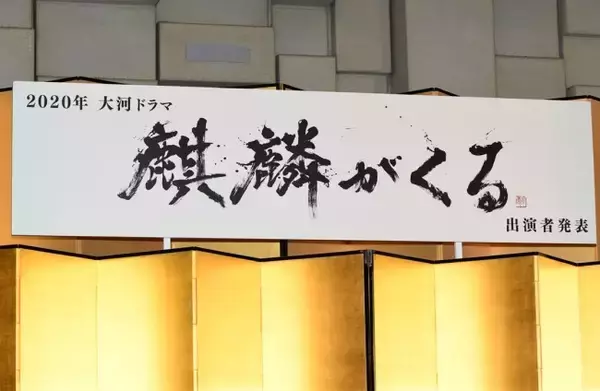 2020年 大河ドラマ
麒麟がくる
出演者発表